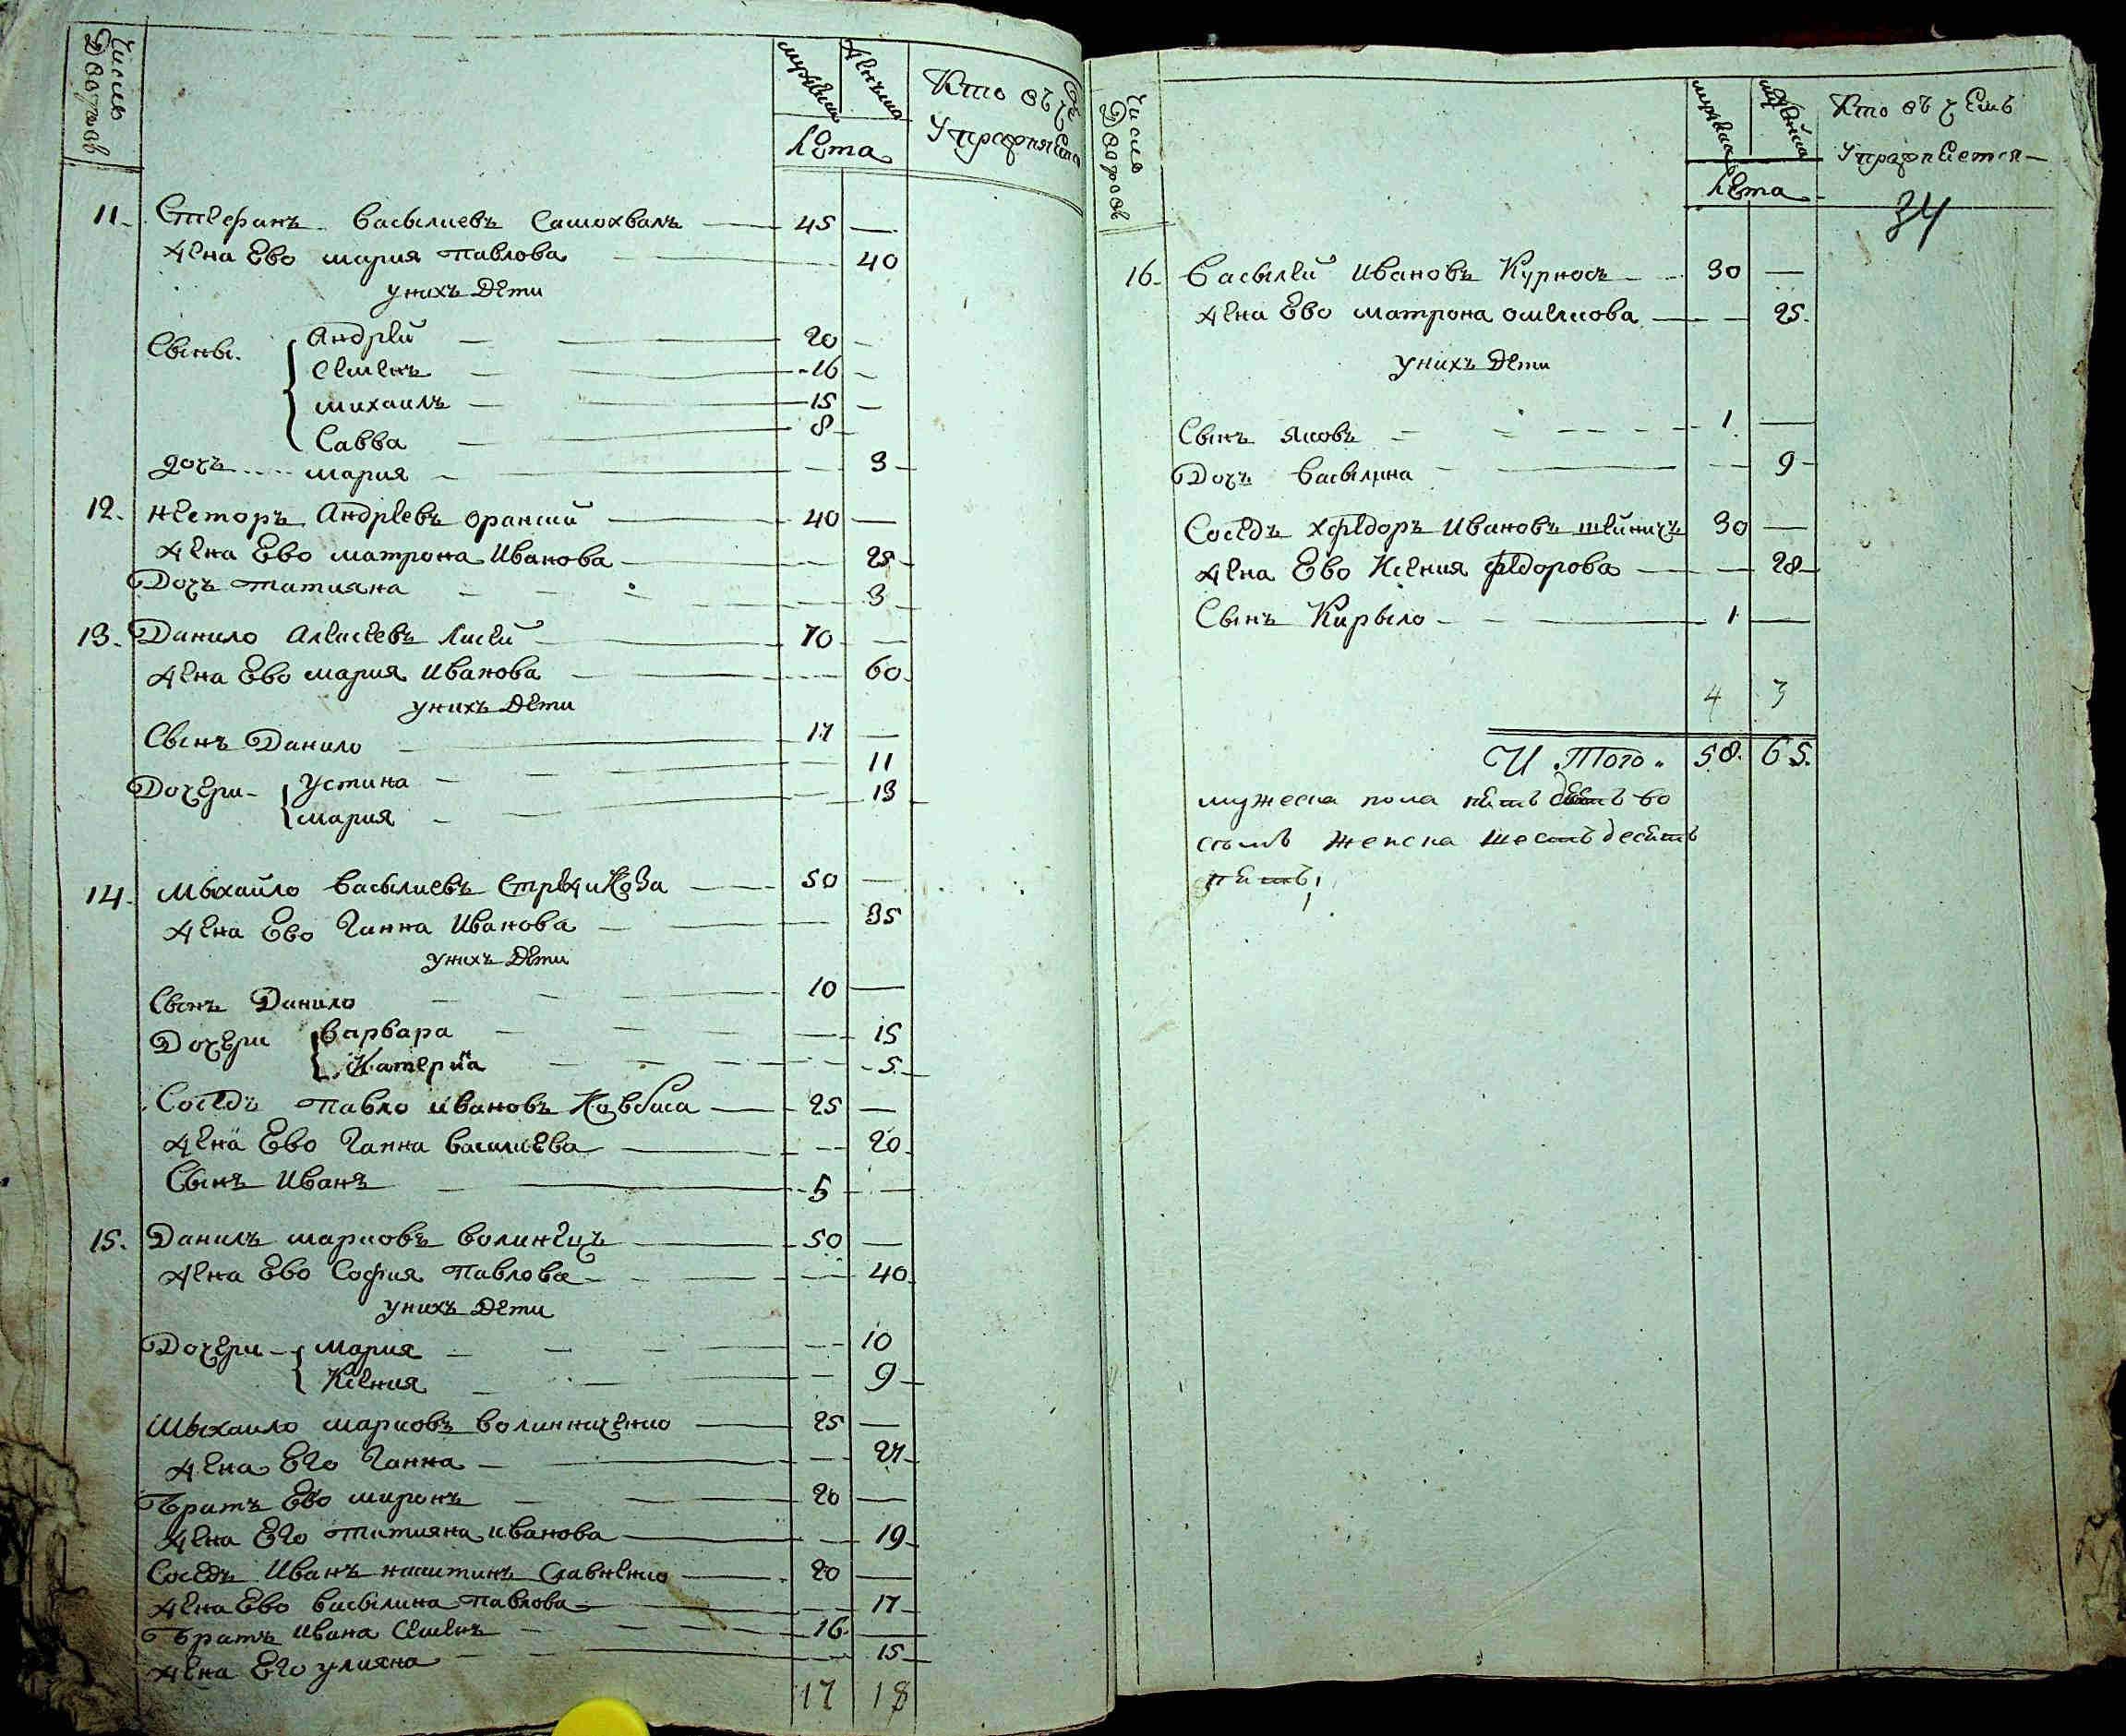 Число Дворовъ
мужеска
женска
Кто въ чемъ
Лета
Упражняется
11. Стефанъ Васылиевъ Самохвалъ — 45 —
жена Ево мария павлова — 40
унихъ Дети
Сыны. Андрей — 20 —
Семенъ — 16 —
михаилъ — 15 —
Савва — 8 —
дочъ мария — 3
12. нестор Андреевъ — 40 —
жена Ево матрона Иванова — 25
Дочъ татияна — 3
13. Данило Алексеевъ Лисей — 70 —
жена Ево мария Иванова — 60
унихъ Дети
Сынъ Данило — 17 —
Дочери устина — 11
мария — 13
14. Мыхайло Васылиевъ Стрижикоза — 50 —
жена Ево Ганна Иванова — 35
унихъ Дети
Сынъ Данило — 10 —
Дочери Варвара — 15
Катерина — 5
Соседъ павло ивановъ Ковбаса — 25 —
жена Ево Ганна василиева — 20
Сынъ Иванъ — 5 —
15. Данилъ марковъ волинецъ — 50 —
жена Ево София павлова — 40
унихъ Дети
Дочери мария — 10
Ксения — 9
Мыхаило марковъ волинниченко — 25 —
жена Его Ганна — 27
Братъ Ево миронъ — 20 —
жена Его татияна иванова — 19
Соседъ Иванъ никитинъ Савченко — 20 —
жена Ево васылина павлова — 17
Братъ Ивана Семенъ — 16 —
жена Его улияна — 15
17 18
Число Дворовъ
мужеска
женска
Кто въ чемъ
Упражнается
Лета
34
16. Васылей Ивановъ Курносъ — 30 —
жена Ево матрона омелкова — 25
унихъ Дети
Сынъ яковъ — 1 —
Дочъ васылина — 9
Соседъ хфедоръ Ивановъ — 30 —
жена Ево Ксения федорова — 28
Сынъ Кирыло — 1 —
4 3
И того 58. 65.
мужеска пола пятъдесятъ во
семъ женска шестъдесятъ
пятъ